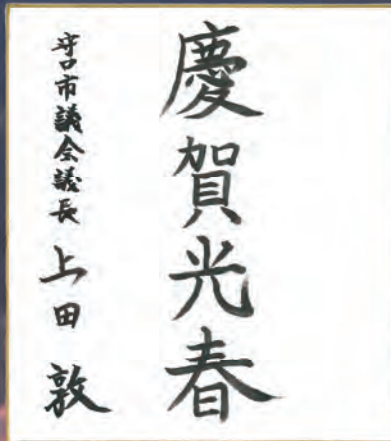 慶賀光春
守口市議会議長 上田 敦